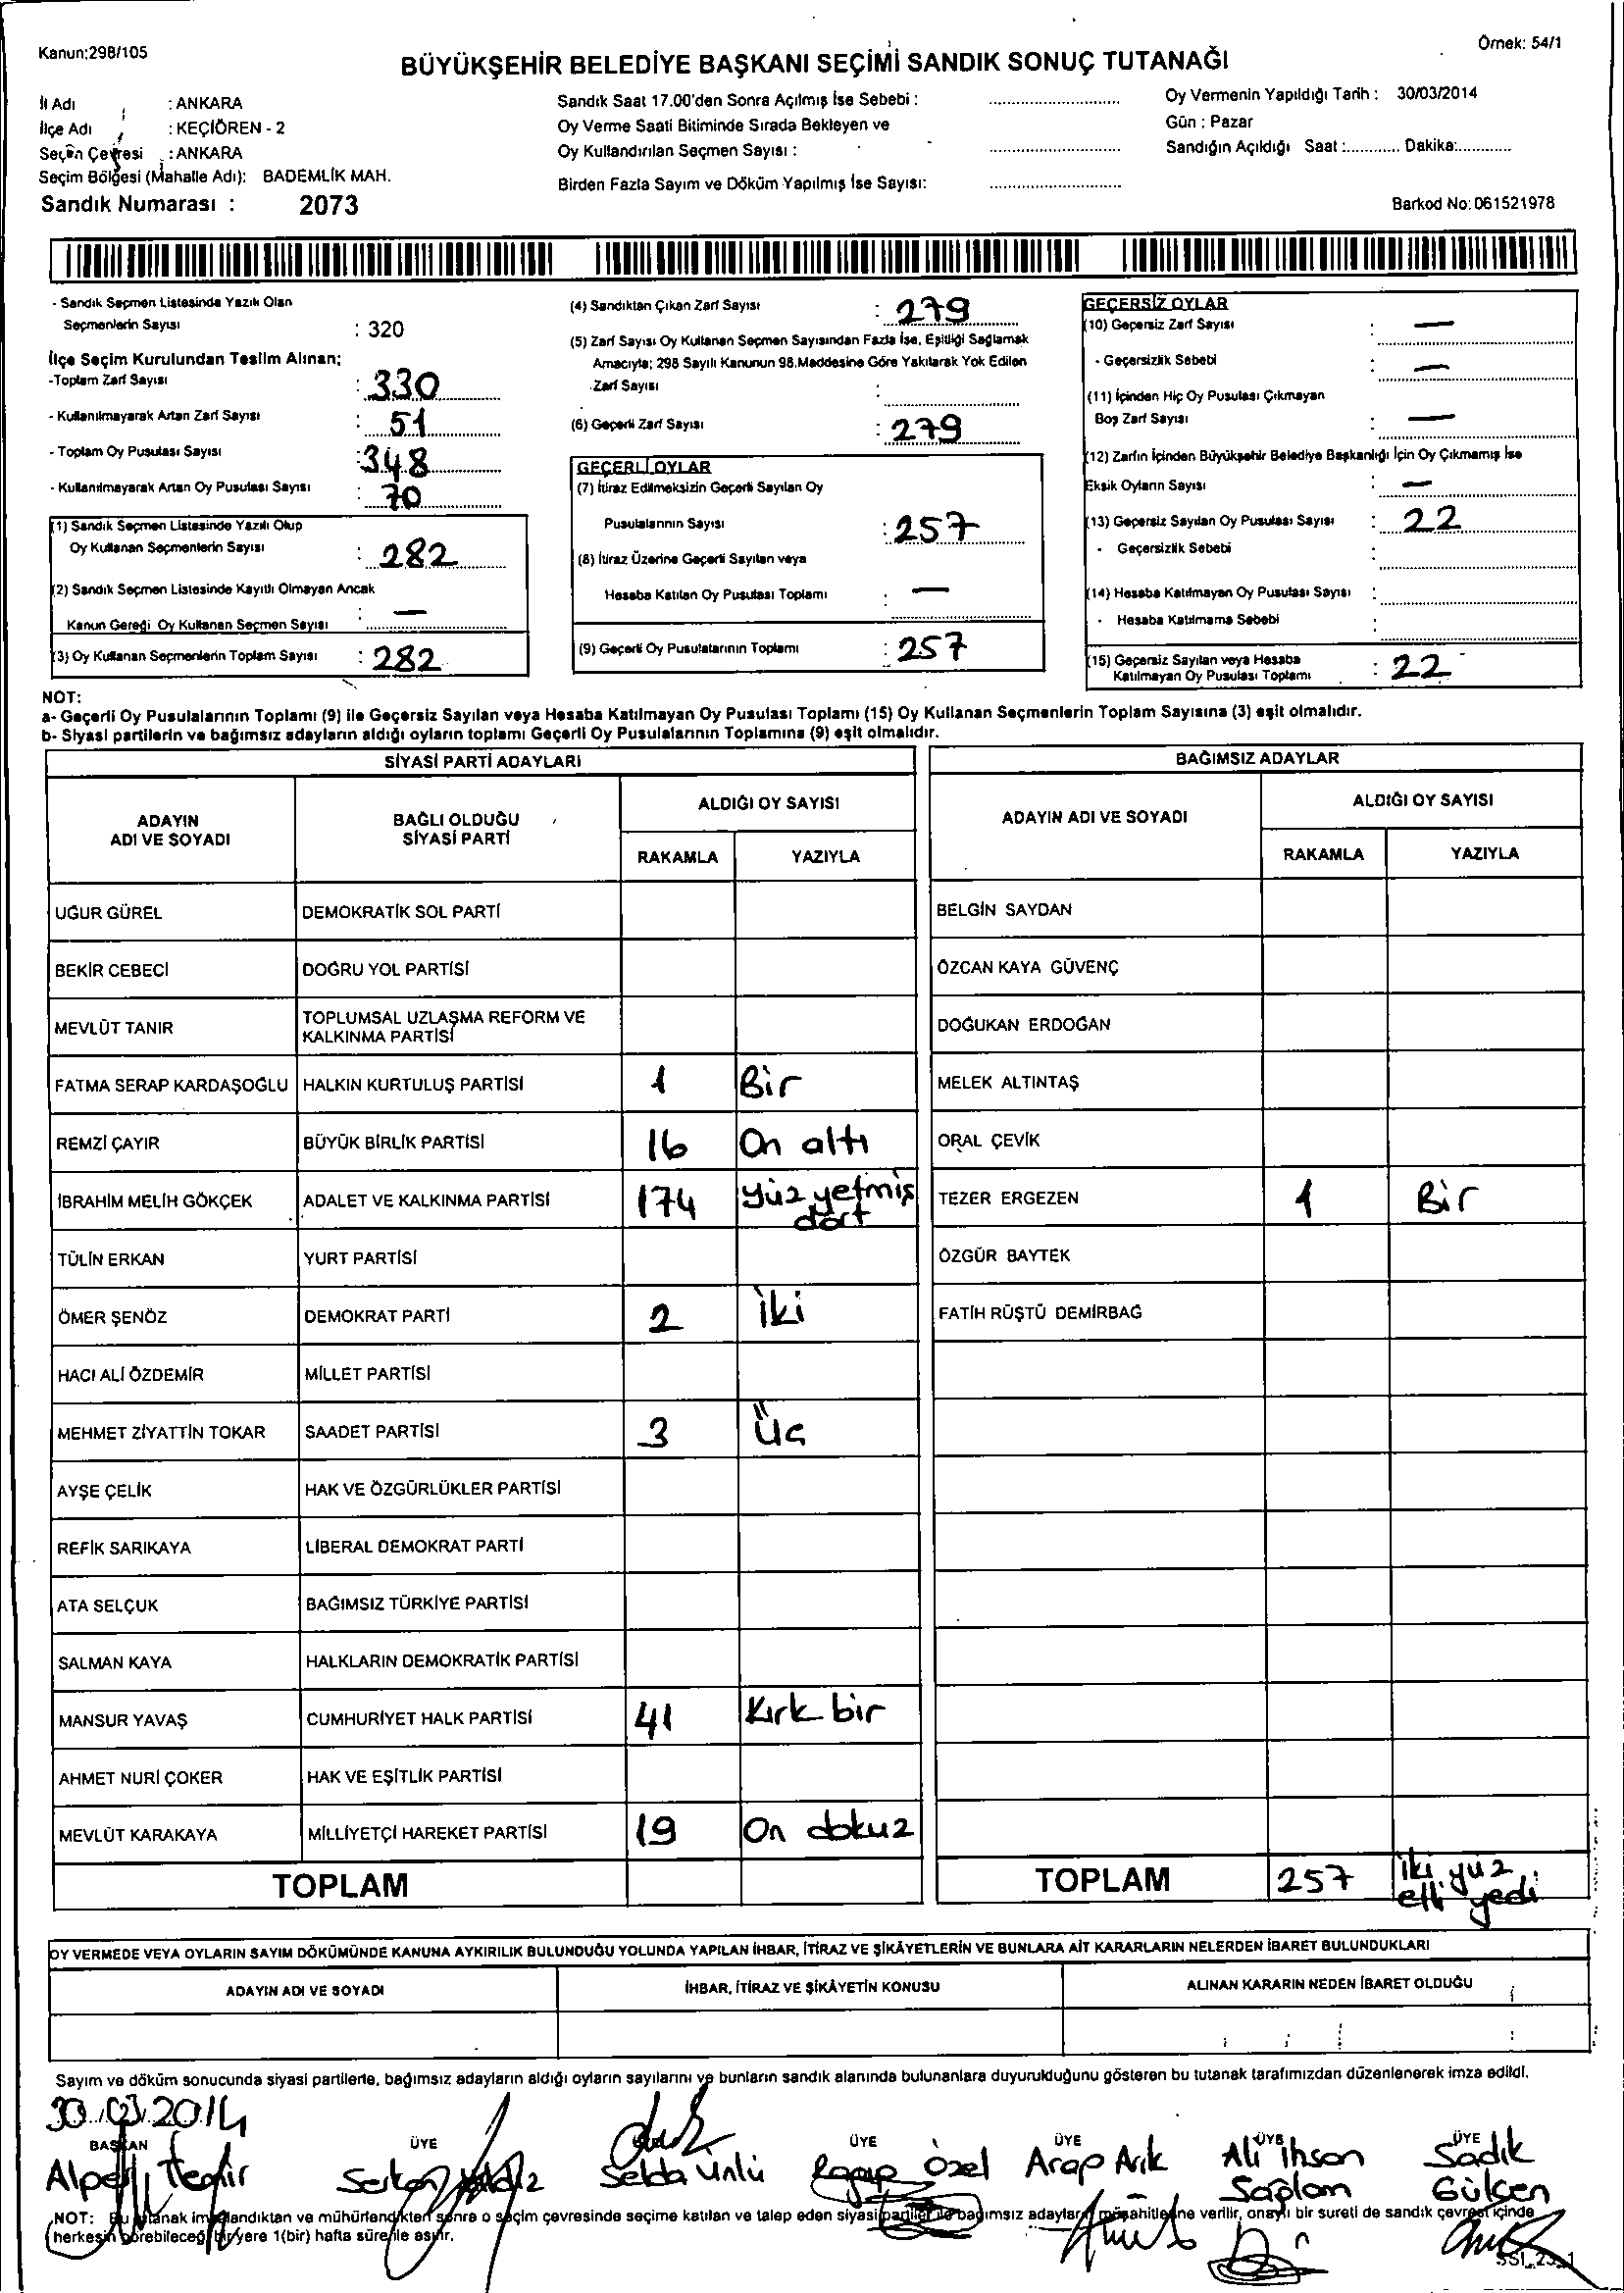 Kanun:298/105
Örnek: 54/1
BÜYÜKŞEHİR BELEDİYE BAŞKANI SEÇİMİ SANDIK SONUÇ TUTANAĞI
İl Adı : ANKARA
İlçe Adı : KEÇİÖREN - 2
Seçim Çevresi : ANKARA
Seçim Bölgesi (Mahalle Adı): BADEMLİK MAH.
Sandık Numarası : 2073
Sandık Saat 17.00'den Sonra Açılmış İse Sebebi :
Oy Verme Saati Bitiminde Sırada Bekleyen ve
Oy Kullandırılan Seçmen Sayısı :
Birden Fazla Sayım ve Döküm Yapılmış İse Sayısı:
Oy Vermenin Yapıldığı Tarih : 30/03/2014
Gün : Pazar
Sandığın Açıldığı Saat :............ Dakika:............
Barkod No: 061521978
- Sandık Seçmen Listesinde Yazılı Olan
Seçmenlerin Sayısı : 320
İlçe Seçim Kurulundan Teslim Alınan;
-Toplam Zarf Sayısı : 330
- Kullanılmayarak Artan Zarf Sayısı : 51
- Toplam Oy Pusulası Sayısı : 348
- Kullanılmayarak Artan Oy Pusulası Sayısı : 70
(1) Sandık Seçmen Listesinde Yazılı Olup
Oy Kullanan Seçmenlerin Sayısı : 282
(2) Sandık Seçmen Listesinde Kayıtlı Olmayan Ancak
Kanun Gereği Oy Kullanan Seçmen Sayısı : —
(3) Oy Kullanan Seçmenlerin Toplam Sayısı : 282
(4) Sandıktan Çıkan Zarf Sayısı : 279
(5) Zarf Sayısı Oy Kullanan Seçmen Sayısından Fazla İse, Eşitliği Sağlamak
Amacıyla; 298 Sayılı Kanunun 98.Maddesine Göre Yakılarak Yok Edilen
Zarf Sayısı :
(6) Geçerli Zarf Sayısı : 279
GEÇERLİ OYLAR
(7) İtiraz Edilmeksizin Geçerli Sayılan Oy
Pusulalarının Sayısı : 257
(8) İtiraz Üzerine Geçerli Sayılan veya
Hesaba Katılan Oy Pusulası Toplamı : —
(9) Geçerli Oy Pusulalarının Toplamı : 257
GEÇERSİZ OYLAR
(10) Geçersiz Zarf Sayısı : —
- Geçersizlik Sebebi : —
(11) İçinden Hiç Oy Pusulası Çıkmayan
Boş Zarf Sayısı : —
(12) Zarfın İçinden Büyükşehir Belediye Başkanlığı İçin Oy Çıkmamış İse
Eksik Oyların Sayısı : —
(13) Geçersiz Sayılan Oy Pusulası Sayısı : 22
- Geçersizlik Sebebi :
(14) Hesaba Katılmayan Oy Pusulası Sayısı :
- Hesaba Katılmama Sebebi :
(15) Geçersiz Sayılan veya Hesaba
Katılmayan Oy Pusulası Toplamı : 22
NOT:
a- Geçerli Oy Pusulalarının Toplamı (9) ile Geçersiz Sayılan veya Hesaba Katılmayan Oy Pusulası Toplamı (15) Oy Kullanan Seçmenlerin Toplam Sayısına (3) eşit olmalıdır.
b- Siyasi partilerin ve bağımsız adayların aldığı oyların toplamı Geçerli Oy Pusulalarının Toplamına (9) eşit olmalıdır.
SİYASİ PARTİ ADAYLARI
ADAYIN
ADI VE SOYADI
BAĞLI OLDUĞU
SİYASİ PARTİ
ALDIĞI OY SAYISI
RAKAMLA YAZIYLA
UĞUR GÜREL DEMOKRATİK SOL PARTİ
BEKİR CEBECİ DOĞRU YOL PARTİSİ
MEVLÜT TANIR TOPLUMSAL UZLAŞMA REFORM VE
KALKINMA PARTİSİ
FATMA SERAP KARDAŞOĞLU HALKIN KURTULUŞ PARTİSİ 1 Bir
REMZİ ÇAYIR BÜYÜK BİRLİK PARTİSİ 16 On altı
İBRAHİM MELİH GÖKÇEK ADALET VE KALKINMA PARTİSİ 174 Yüz yetmiş
dört
TÜLİN ERKAN YURT PARTİSİ
ÖMER ŞENÖZ DEMOKRAT PARTİ 2 İki
HACI ALİ ÖZDEMİR MİLLET PARTİSİ
MEHMET ZİYATTİN TOKAR SAADET PARTİSİ 3 Üç
AYŞE ÇELİK HAK VE ÖZGÜRLÜKLER PARTİSİ
REFİK SARIKAYA LİBERAL DEMOKRAT PARTİ
ATA SELÇUK BAĞIMSIZ TÜRKİYE PARTİSİ
SALMAN KAYA HALKLARIN DEMOKRATİK PARTİSİ
MANSUR YAVAŞ CUMHURİYET HALK PARTİSİ 41 Kırk bir
AHMET NURİ ÇOKER HAK VE EŞİTLİK PARTİSİ
MEVLÜT KARAKAYA MİLLİYETÇİ HAREKET PARTİSİ 19 On dokuz
TOPLAM
BAĞIMSIZ ADAYLAR
ADAYIN ADI VE SOYADI
ALDIĞI OY SAYISI
RAKAMLA YAZIYLA
BELGİN SAYDAN
ÖZCAN KAYA GÜVENÇ
DOĞUKAN ERDOĞAN
MELEK ALTINTAŞ
ORAL ÇEVİK
TEZER ERGEZEN 1 Bir
ÖZGÜR BAYTEK
FATİH RÜŞTÜ DEMİRBAĞ
TOPLAM 257 iki yüz
elli yedi
OY VERMEDE VEYA OYLARIN SAYIM DÖKÜMÜNDE KANUNA AYKIRILIK BULUNDUĞU YOLUNDA YAPILAN İHBAR, İTİRAZ VE ŞİKÂYETLERİN VE BUNLARA AİT KARARLARIN NELERDEN İBARET BULUNDUKLARI
ADAYIN ADI VE SOYADI
İHBAR, İTİRAZ VE ŞİKÂYETİN KONUSU
ALINAN KARARIN NEDEN İBARET OLDUĞU
Sayım ve döküm sonucunda siyasi partilerle, bağımsız adayların aldığı oyların sayılarını ve bunların sandık alanında bulunanlara duyurulduğunu gösteren bu tutanak tarafımızdan düzenlenerek imza edildi.
30.03.2014
BAŞKAN ÜYE ÜYE ÜYE ÜYE ÜYE
Alper Serkan Selda Ünlü Ragıp Özel Arap Arık Ali İhsan Sadık
Sağlam Gülçen
NOT: Bu tutanak imzalandıktan ve mühürlendikten sonra o seçim çevresinde seçime katılan ve talep eden siyasi partiler ile bağımsız adayların müşahitlerine verilir, onaylı bir sureti de sandık çevresi içinde
herkesin görebileceği bir yere 1(bir) hafta süre ile asılır.